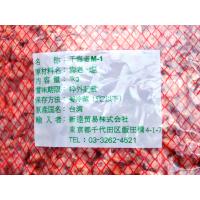 名　称：干海老M-1
原材料名：海老・塩
内容量：1kg
賞味期限：枠外記載
保存方法：要冷蔵（5℃以下）
原産国名：台湾
輸入者：新達貿易株式会社
東京都千代田区飯田橋4-1-7
03-3262-4521